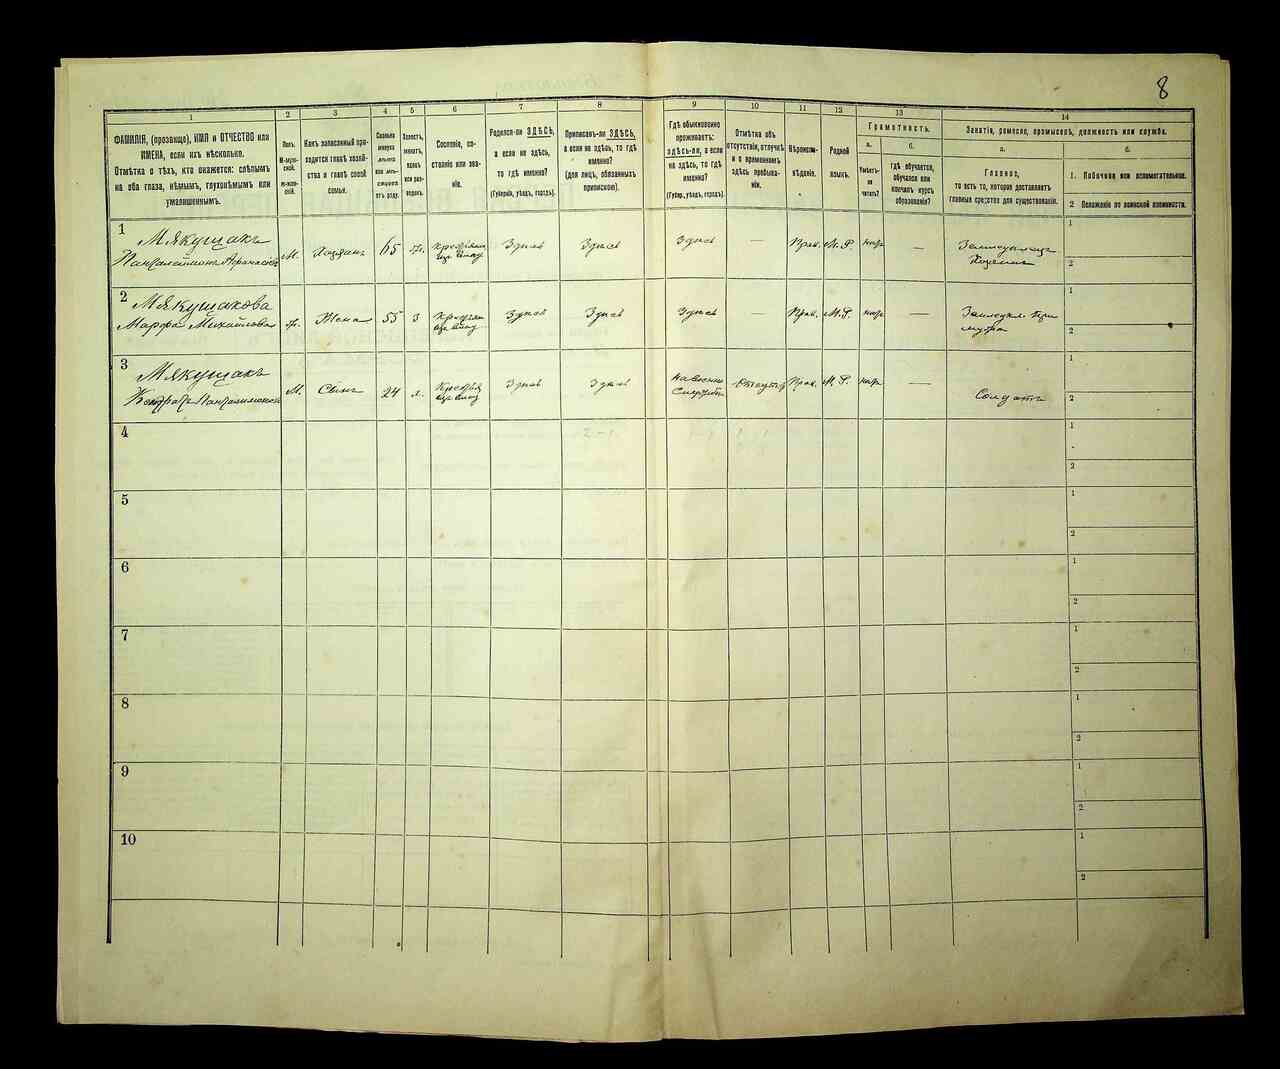 8
1
2
3
4
5
6
7
8
9
10
11
12
13
14
ФАМИЛІЯ, (прозвище), ИМЯ и ОТЧЕСТВО или
ИМЕНА, если ихъ нѣсколько.
Отмѣтка о тѣхъ, кто окажется: слѣпымъ
на оба глаза, нѣмымъ, глухонѣмымъ или
умалишеннымъ.
Полъ.
М-муж-
ской.
Ж-жен-
скій.
Какъ записанный при-
ходится главѣ хозяй-
ства и главѣ своей
семьи.
Сколько
минуло
лѣтъ
или мѣ-
сяцевъ
отъ роду.
Холостъ,
женатъ,
вдовъ
или раз-
веденъ.
Сословіе, со-
стояніе или зва-
ніе.
Родился-ли ЗДѢСЬ,
а если не здѣсь,
то гдѣ именно?
(Губернія, уѣздъ, городъ).
Приписанъ-ли ЗДѢСЬ,
а если не здѣсь, то гдѣ
именно?
(для лицъ, обязанныхъ
припиской).
Гдѣ обыкновенно
проживаетъ:
здѣсь-ли, а если
не здѣсь, то гдѣ
именно?
(Губер., уѣздъ, городъ).
Отмѣтка объ
отсутствіи, отлучкѣ
и о временномъ
здѣсь пребыва-
ніи.
Вѣроиспо-
вѣданіе.
Родной
языкъ.
Грамотность.
а.
Умѣетъ-
ли
читать?
б.
гдѣ обучается,
обучался или
кончилъ курсъ
образованія?
Занятіе, ремесло, промыселъ, должность или служба.
а.
Главное,
то есть то, которое доставляетъ
главныя средства для существованія.
б.
1. Побочное или вспомогательное.
2 Положеніе по воинской повинности.
1
Мякушакъ
Панталеймонъ
М.
Хозяинъ
65
Здѣсь
Здѣсь
Здѣсь
—
Прав.
М.Р.
—
1
2
2
Мякушакова
Марфа Михайлова
Жена
55
З
Здѣсь
Здѣсь
Здѣсь
—
Прав.
М.Р.
—
1
2
3
Мякушакъ
М.
Сынъ
24
Здѣсь
Здѣсь
Прав.
М.Р.
—
Солдатъ
1
2
4
1
2
5
1
2
6
1
2
7
1
2
8
1
2
9
1
2
10
1
2